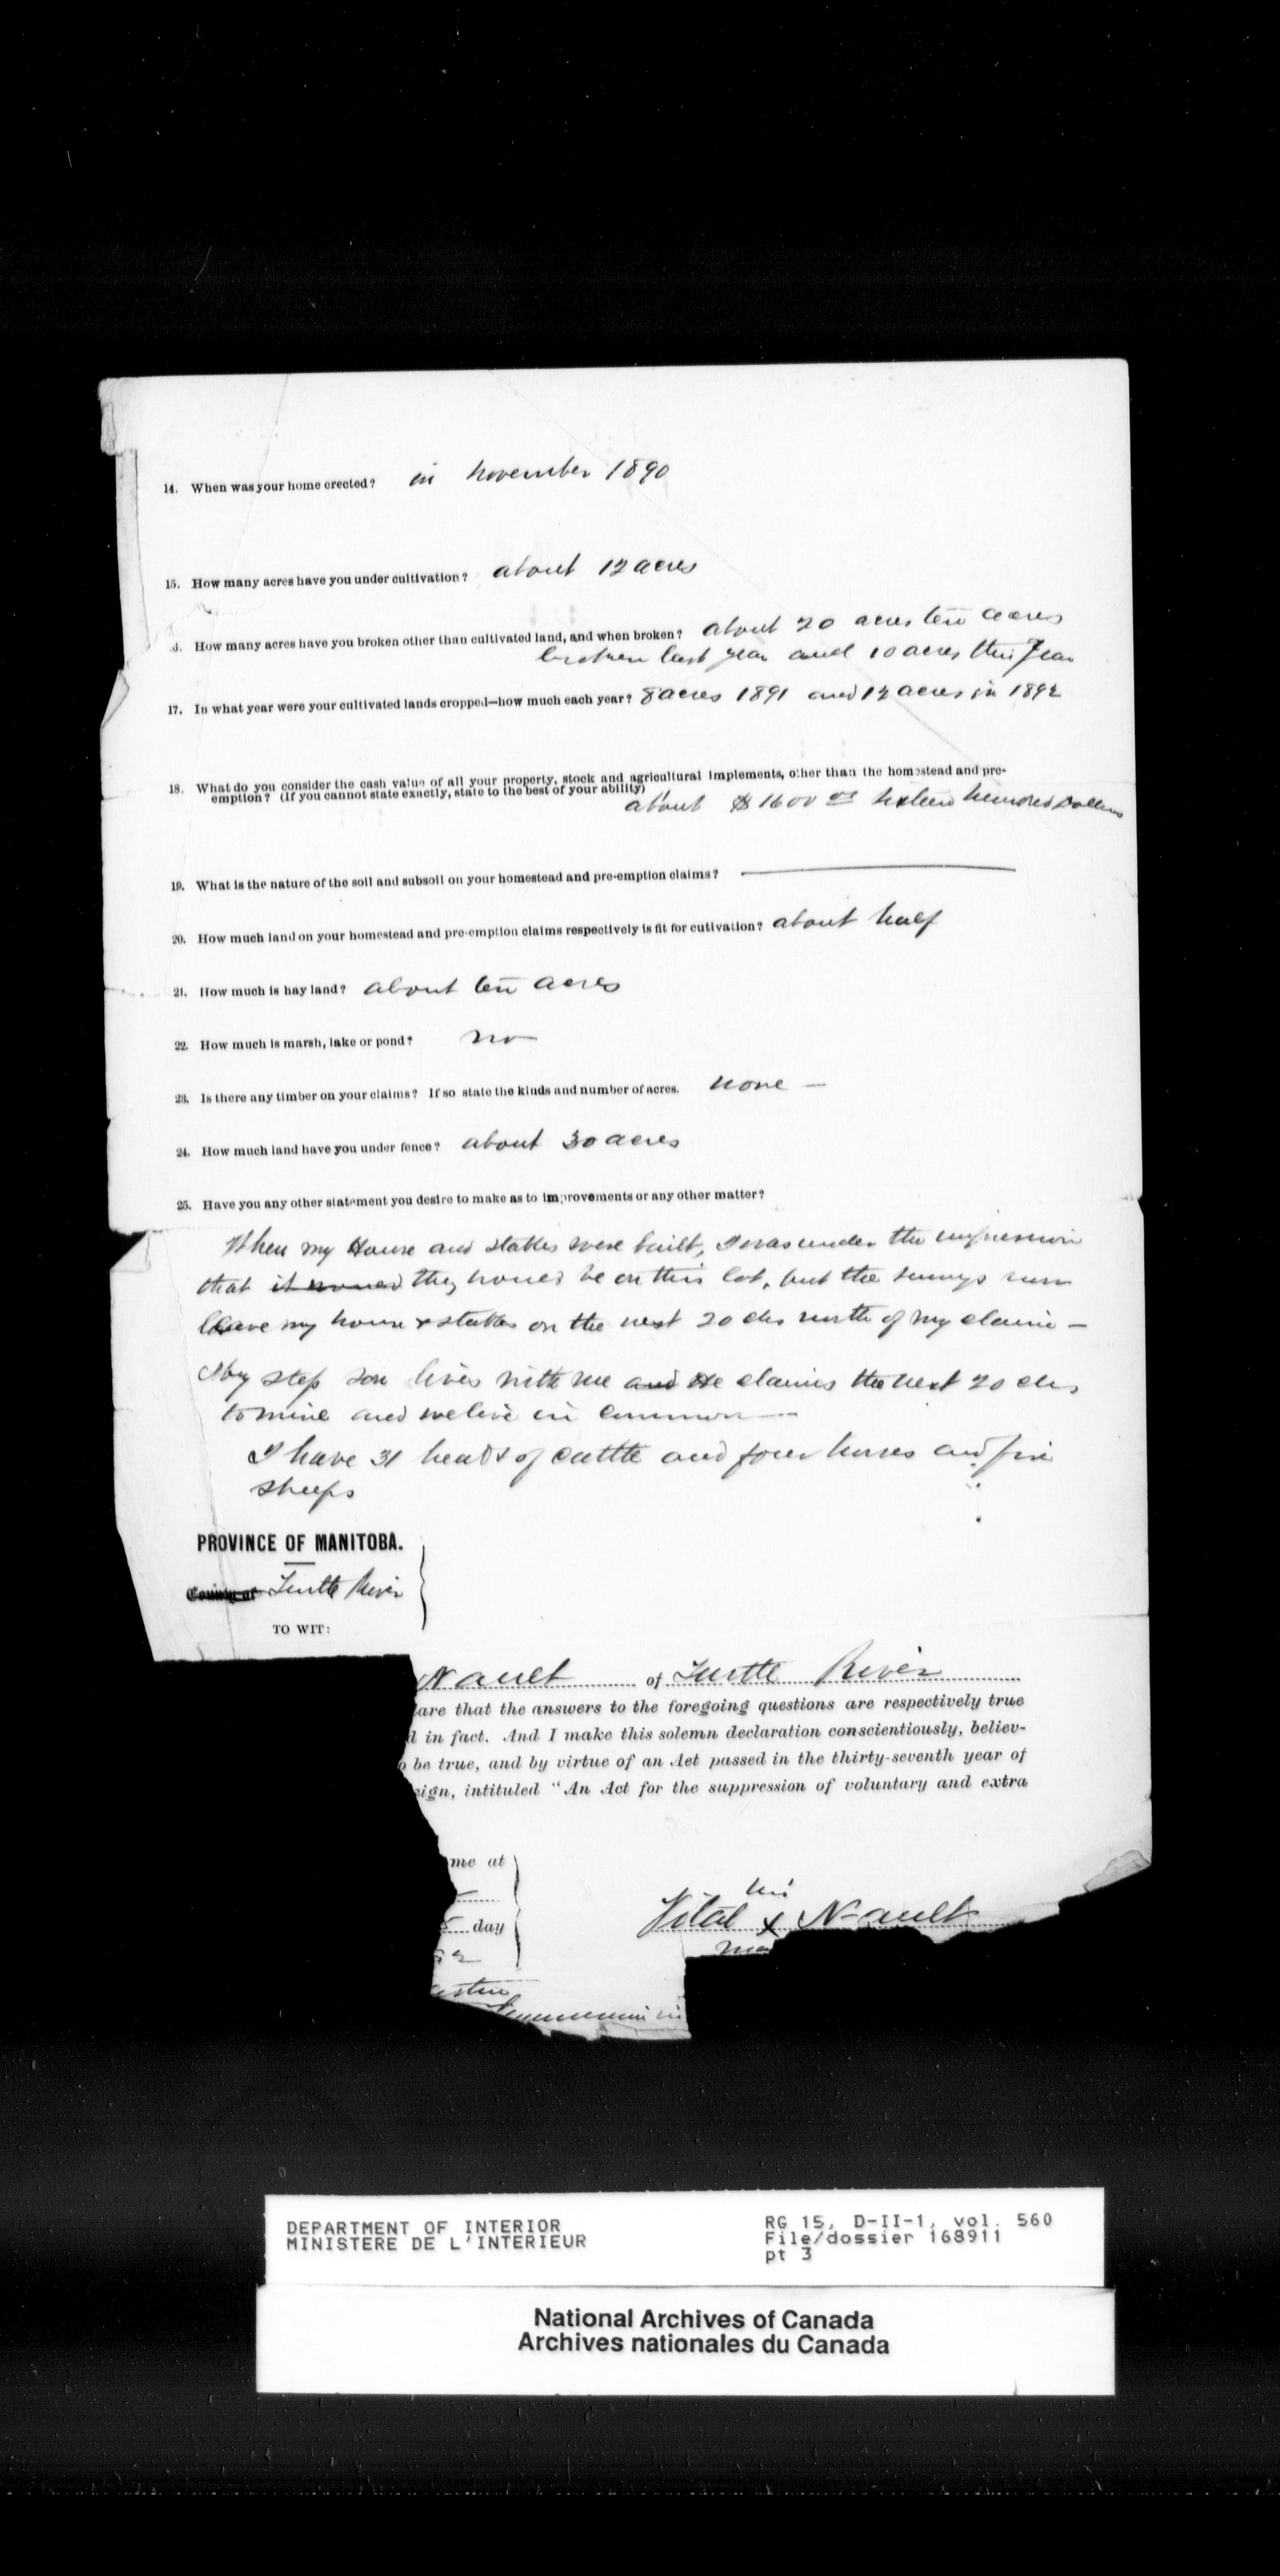 14. When was your home erected? in november 1890
15. How many acres have you under cultivation? about 12 acres
How many acres have you broken other than cultivated land, and when broken? about 20 acres ten acres
broken last year and 10 acres this year
17. In what year were your cultivated lands cropped—how much each year? 8 acres 1891 and 12 acres in 1892
18. What do you consider the cash value of all your property, stock and agricultural implements, other than the homestead and pre-
emption? (If you cannot state exactly, state to the best of your ability)
about $1600 00 sixteen hundred Dollars
19. What is the nature of the soil and subsoil on your homestead and pre-emption claims? ——
20. How much land on your homestead and pre-emption claims respectively is fit for cutivation? about half
21. How much is hay land? about ten acres
22. How much is marsh, lake or pond? no
23. Is there any timber on your claims? If so state the kinds and number of acres. none —
24. How much land have you under fence? about 30 acres
25. Have you any other statement you desire to make as to improvements or any other matter?
When my House and stables were built, I was under the impression
that it would they would be on this lot, but the surveys
leave my house & stables on the next 20 chs north of my claim —
My step son lives with me and He claims the next 20 chs
to mine and we live in common —
I have 31 heads of cattle and four horses and five
sheeps
PROVINCE OF MANITOBA.
County of Turtle River
TO WIT:
Nault of Turtle River
lare that the answers to the foregoing questions are respectively true
d in fact. And I make this solemn declaration conscientiously, believ-
o be true, and by virtue of an Act passed in the thirty-seventh year of
eign, intituled "An Act for the suppression of voluntary and extra
me at
day
his
Vital x Nault
ma
DEPARTMENT OF INTERIOR
MINISTERE DE L'INTERIEUR
RG 15, D-II-1, vol. 560
File/dossier 168911
pt 3
National Archives of Canada
Archives nationales du Canada